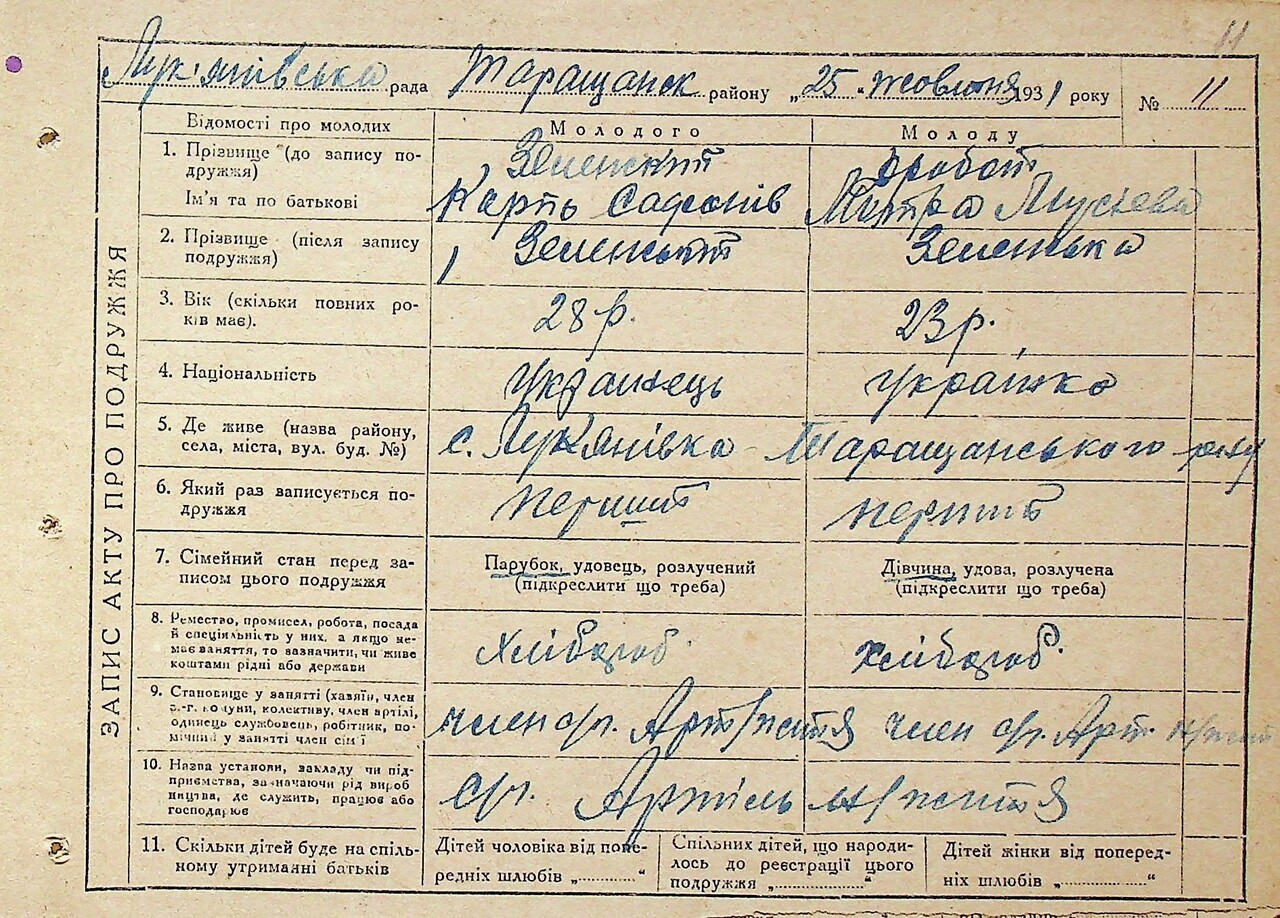 11
Лук'янівська рада Таращанск району „25“ жовтня 1931 року № 11
ЗАПИС АКТУ ПРО ПОДРУЖЖЯ
Відомості про молодих
Молодого
Молоду
1. Прізвище (до запису по-
дружжя)
Ім'я та по батькові
Зеленский
Карпь Сафонів
Мотря
2. Прізвище (після запису
подружжя)
Зеленський
Зеленська
3. Вік (скільки повних ро-
ків має).
28 р.
23 р.
4. Національність
Українець
Українка
5. Де живе (назва району,
села, міста, вул. буд. №)
с. Лук'янівка Таращанського р-ну
6. Який раз записується по-
дружжя
перший
перший
7. Сімейний стан перед за-
писом цього подружжя
Парубок, удовець, розлучений
(підкреслити що треба)
Дівчина, удова, розлучена
(підкреслити що треба)
8. Ремество, промисел, робота, посада
й спеціяльність у них, а якщо не-
має заняття, то зазначити, чи живе
коштами рідні або держави
хлібороб
хлібороб.
9. Становище у занятті (хазяїн, член
с.-г. комуни, колективу, член артілі,
одинець службовець, робітник, по-
мічний у занятті член сім'ї
член с/г. Арт н/життя
член с/г. Арт. н/життя
10. Назва установи, закладу чи під-
приємства, зазначаючи рід вироб
ництва, де служить, працює або
господарює
с/г. Артіль н/життя
11. Скільки дітей буде на спіль-
ному утриманні батьків
Дітей чоловіка від попе-
редніх шлюбів „............“
Спільних дітей, що народи-
лось до реєстрації цього
подружжя „............“
Дітей жінки від поперед-
ніх шлюбів „............“